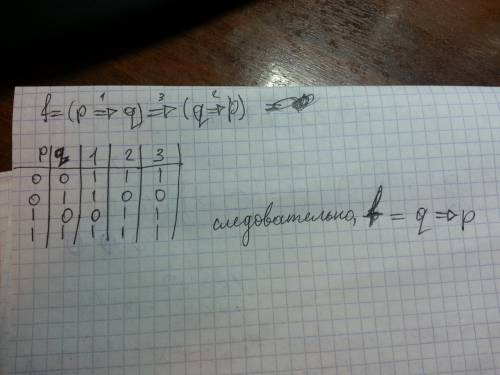 f = (p ⇒ q) ⇒ (q ⇒ p)
1 3 2
p q 1 2 3
0 0 1 1 1
0 1 1 0 0
1 0 0 1 1
1 1 1 1 1
следовательно, f = q ⇒ p